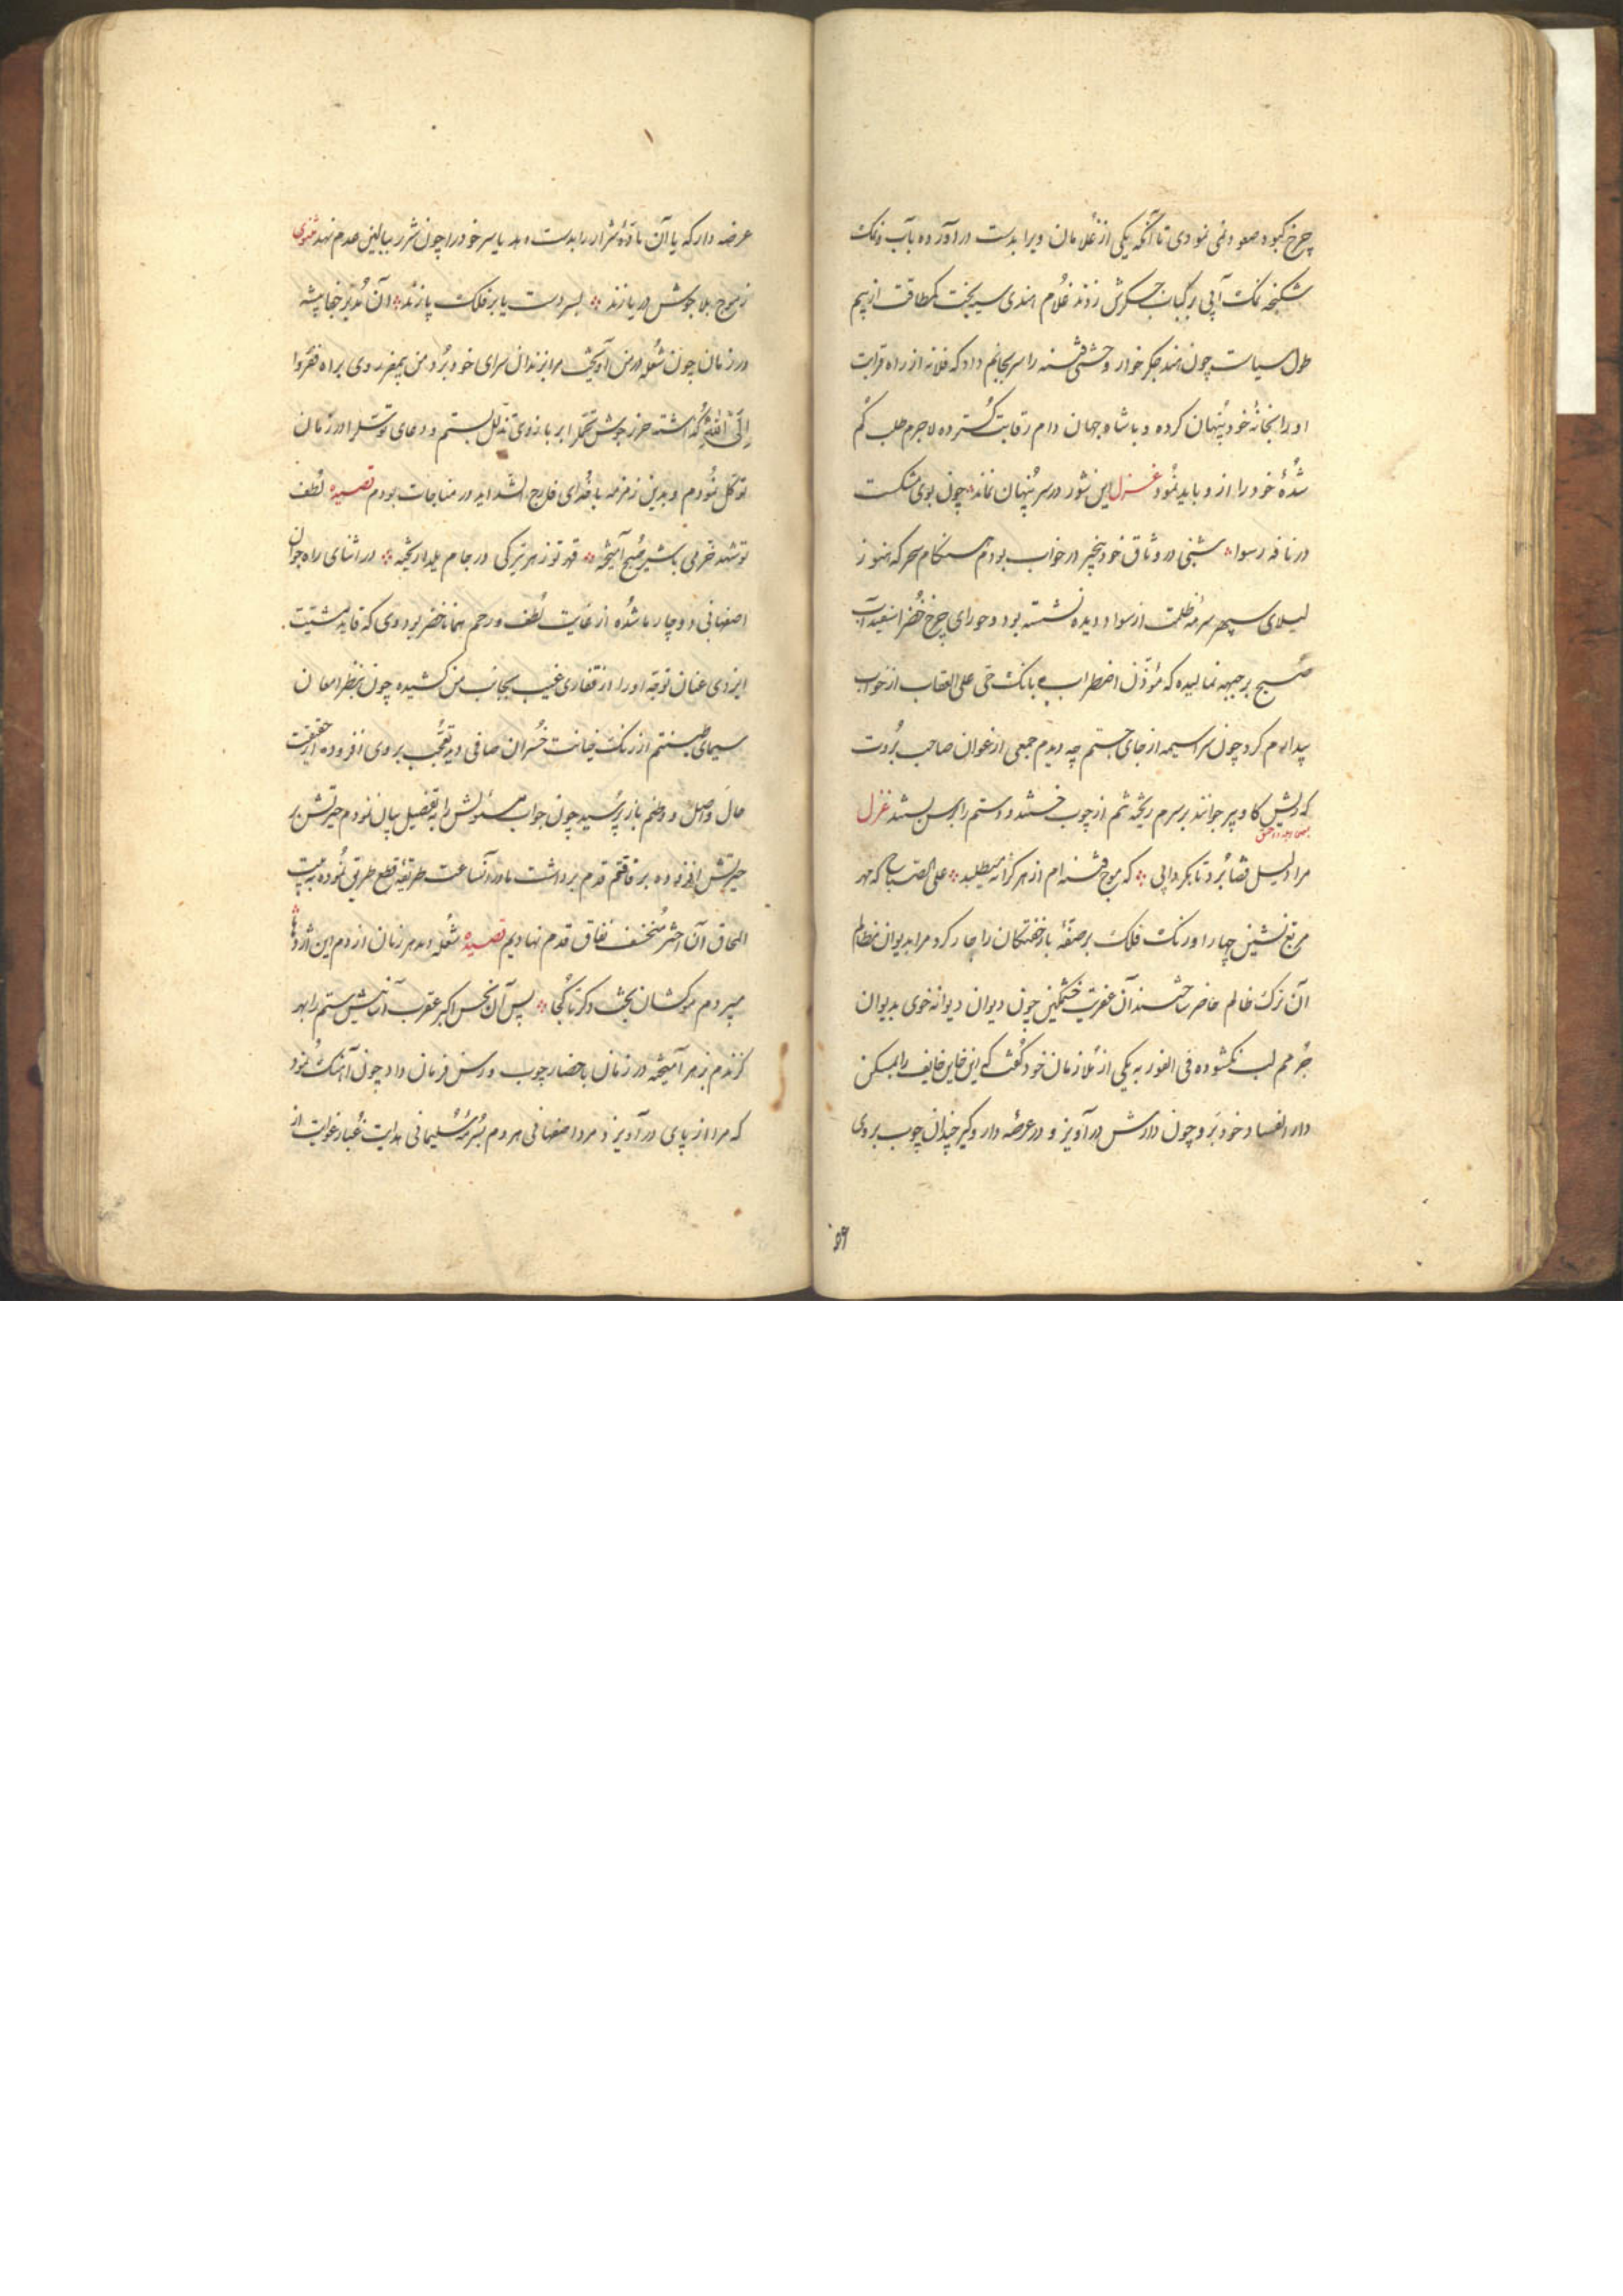 چرخ کبود صعود نمی نمودی تا آنکه یکی از غلامان ویرا بدست درآورده بآب و نمک
شکنجه نمک آبی بر کباب جگرش زدند غلام هندی سیه بخت کمطاقت از بیم
طول سیاست چون هند جگرخوار وحشی فتنه را سر بجانبم داد که فلانه از راه قرابت
او را بخانهٔ خود پنهان کرده و با شاه جهان دام رقابت گسترده لاجرم طلب گم
شدهٔ خود را از و باید نمود غزل این شور در سر پنهان نماند چون بوی مشکست
در نافه رسوا شبی در وثاق خود بیخبر در خواب بودم هنگام سحر که هنوز
لیلای سپهر سرمهٔ ظلمت از سواد دیده نشسته بود و حورای چرخ خضرا سفیدآب
صبح بر جبهه نمالیده که مؤذن اضطراب بانک حی علی العقاب از خواب
بیدارم کرد چون سراسیمه از جای جستم چه دیدم جمعی از عوان صاحب بروت
که ریش کاو پیر جوانند بر سرم ریخته تنم از چوب خستند و دستم را برسن بستند غزل
مرا دلیل قضا برد تا بگردابی که موج فتنه ام از هر کرانه میطلبد علی الصباح که مهر
مربع نشین چهار اورنک فلک بر صفهٔ بار خفتگان را جار کرد مرا بدیوان مظالم
آن ترک ظالم حاضر ساختند آن عفریت خشمگین چون دیوان دیوانه خوی بدیوان
جرمم لب نگشوده فی الفور به یکی از ملازمان خود گفت که این خاین خایف را بمسکن
دار الفساد خود بر و چون دارش درآویز و در عرصهٔ دار و گیر چندان چوب بر وی
عرضه دار که یا آن مادهٔ شرار را بدست دهد یا سر خود را چون شرر ببالین عدم نهد مثنوی
ز موج بلا جوش دریا زند بسر دست یا بر فلک پا زند آن مدبر جفاپیشه
در زمان چون شعله در من آویخت مرا بزندان سرای خود برد و من بمقر روی براه ففروا
الی الله گذاشته حرز جوشن تحمل بر بازوی تذلل بستم و دعای توسل را در زمان
توکل نمودم و بدین زمزمه با خدای فارج الشداید در مناجات بودم قصیده لطف
تو شهد خرمی با شیر صبح آمیخته قهر تو زهر تیرگی در جام یلدا ریخته در اثنای راه جوان
اصفهانی دوچار ما شده از غایت لطف و رحم همانا خضر بود وی که قاید مشیت
ایزدی عنان توجه او را از قفاری غیب بجانب من کشیده چون بنظر امعان
سیمای طینتم از رنک خیانت خسران صافی دید تعجب بر وی افزوده از حقیقت
حال و اصل و وطنم باز پرسید چون جواب مسئولش را به تفصیل بیان نمودم حیرتش بر
حیرتش افزوده برفاقتم قدم برداشت تا در آنساعت طریقهٔ قطع طریق نموده به بیت
المحاق آن اختر منخسف نفاق قدم نهادیم قصیده شعله دمد هر زمان از دم این اژدها
میبردم موکشان بخت دگر تا کجا پس آن نحس اکبر عقرب آسا نیش ستم را بهر
گزندم زهر آمیخته در زمان باحضار چوب و رسن فرمان داد چون آهنک نمود
که مرا از پای درآویزد مرد اصفهانی هر دم بسرمهٔ سلیمانی هدایت غبار غوایت از